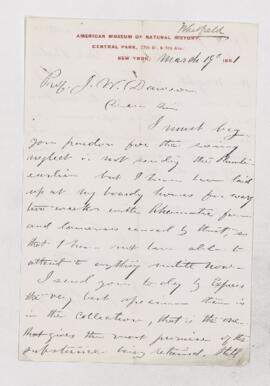 Whitfield
AMERICAN MUSEUM OF NATURAL HISTORY,
CENTRAL PARK, 77th St. & 8th Ave.
NEW YORK, March 19th 1881
Prof. J. W. Dawson
Dear Sir
I must beg
your pardon for the seeming
neglect in not sending the
earlier but I have been laid
up at my boarding house for over
two weeks with Rheumatic fever
and lameness caused by that, so
that I have not been able to
attend to anything until now.
I send you to day by Express
the very best specimen there is
in the Collection, that is the one
that gives the most promise of the
substance being retained.